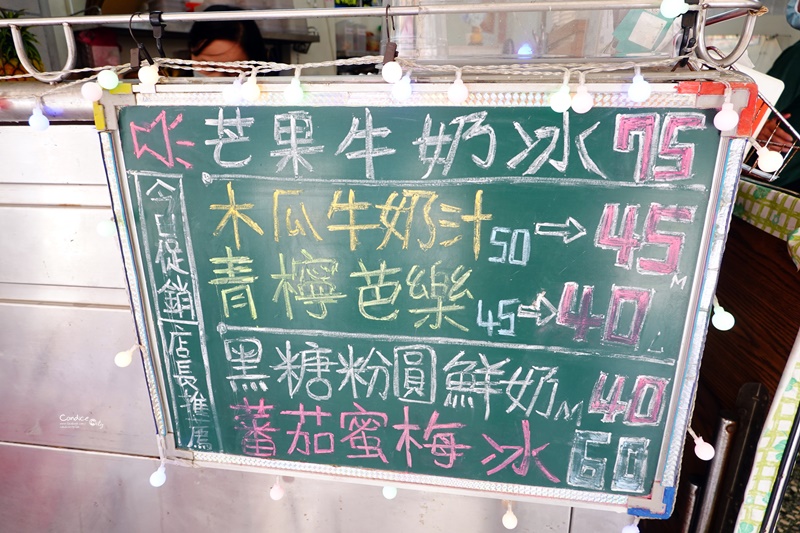 芒果牛奶冰75
今日促銷
木瓜牛奶汁50→45M
青檸芭樂45→40L
店長推薦
黑糖粉圓鮮奶M40
蕃茄蜜梅冰60
Candice